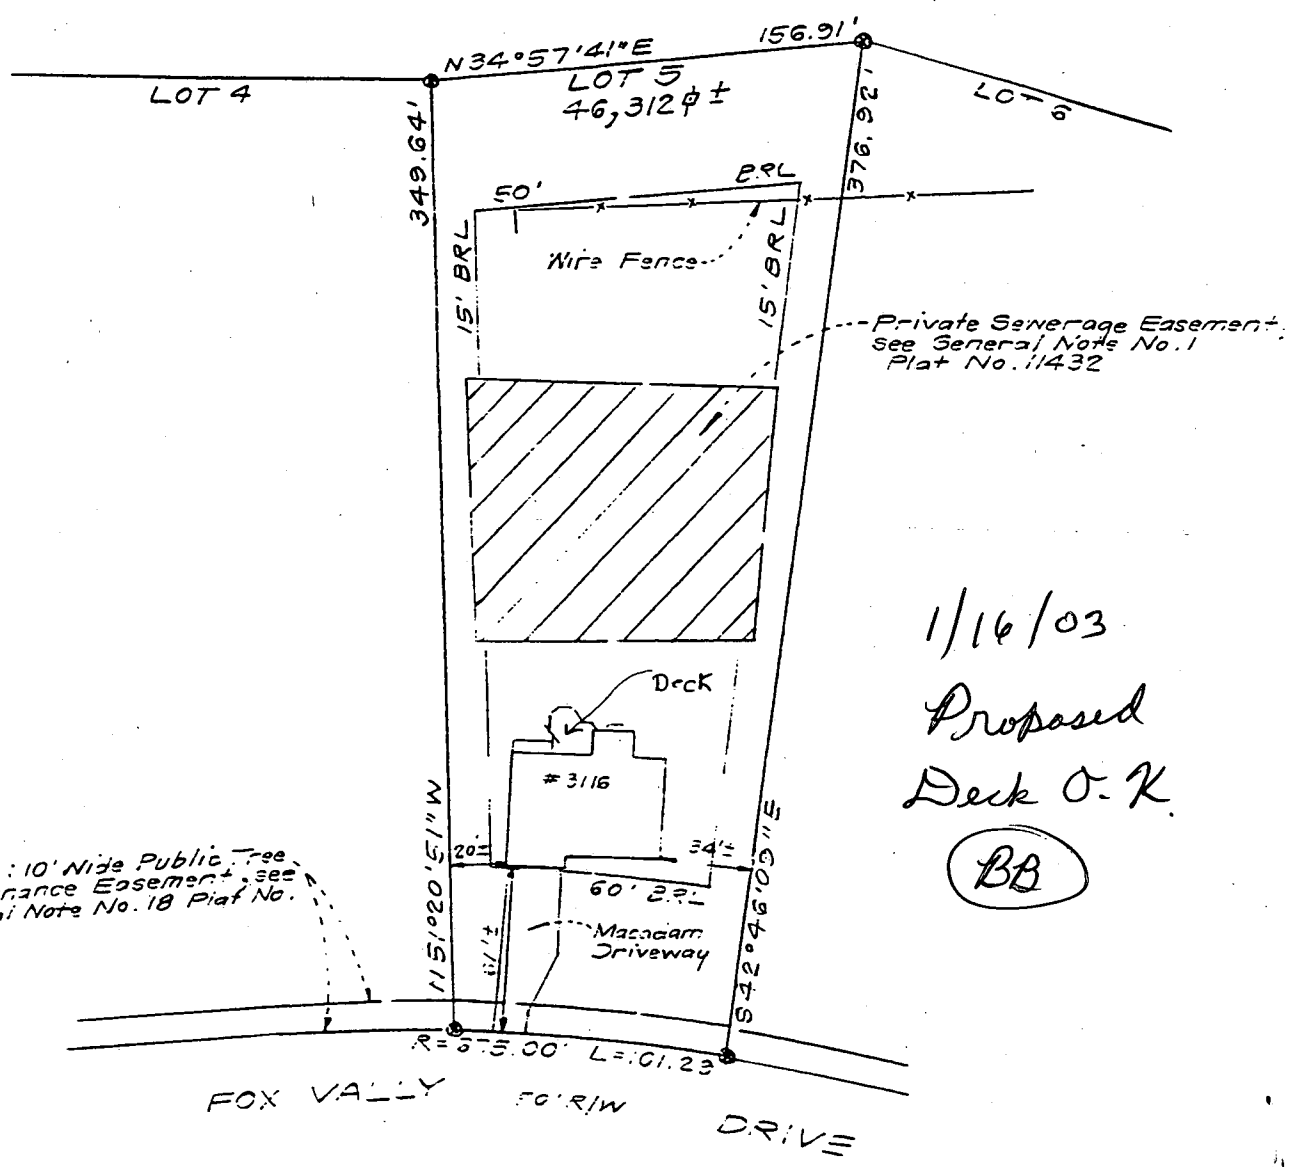 N34°57'41"E
156.91'
LOT 4
LOT 5
46,312 ⏍ ±
LOT 6
349.64'
376.92'
50'
BRL
15' BRL
15' BRL
Wire Fence
Private Sewerage Easement.
see General Note No.1
Plat No. 11432
1/16/03
Proposed
Deck O.K.
BB
Deck
# 3116
20'±
34'±
60' BRL
N51°20'51"W
S42°46'03"E
: 10' Wide Public Tree
nance Easement, see
Note No. 18 Plat No.
Macadam
Driveway
61'±
L=101.23
FOX VALLY
R/W
DRIVE